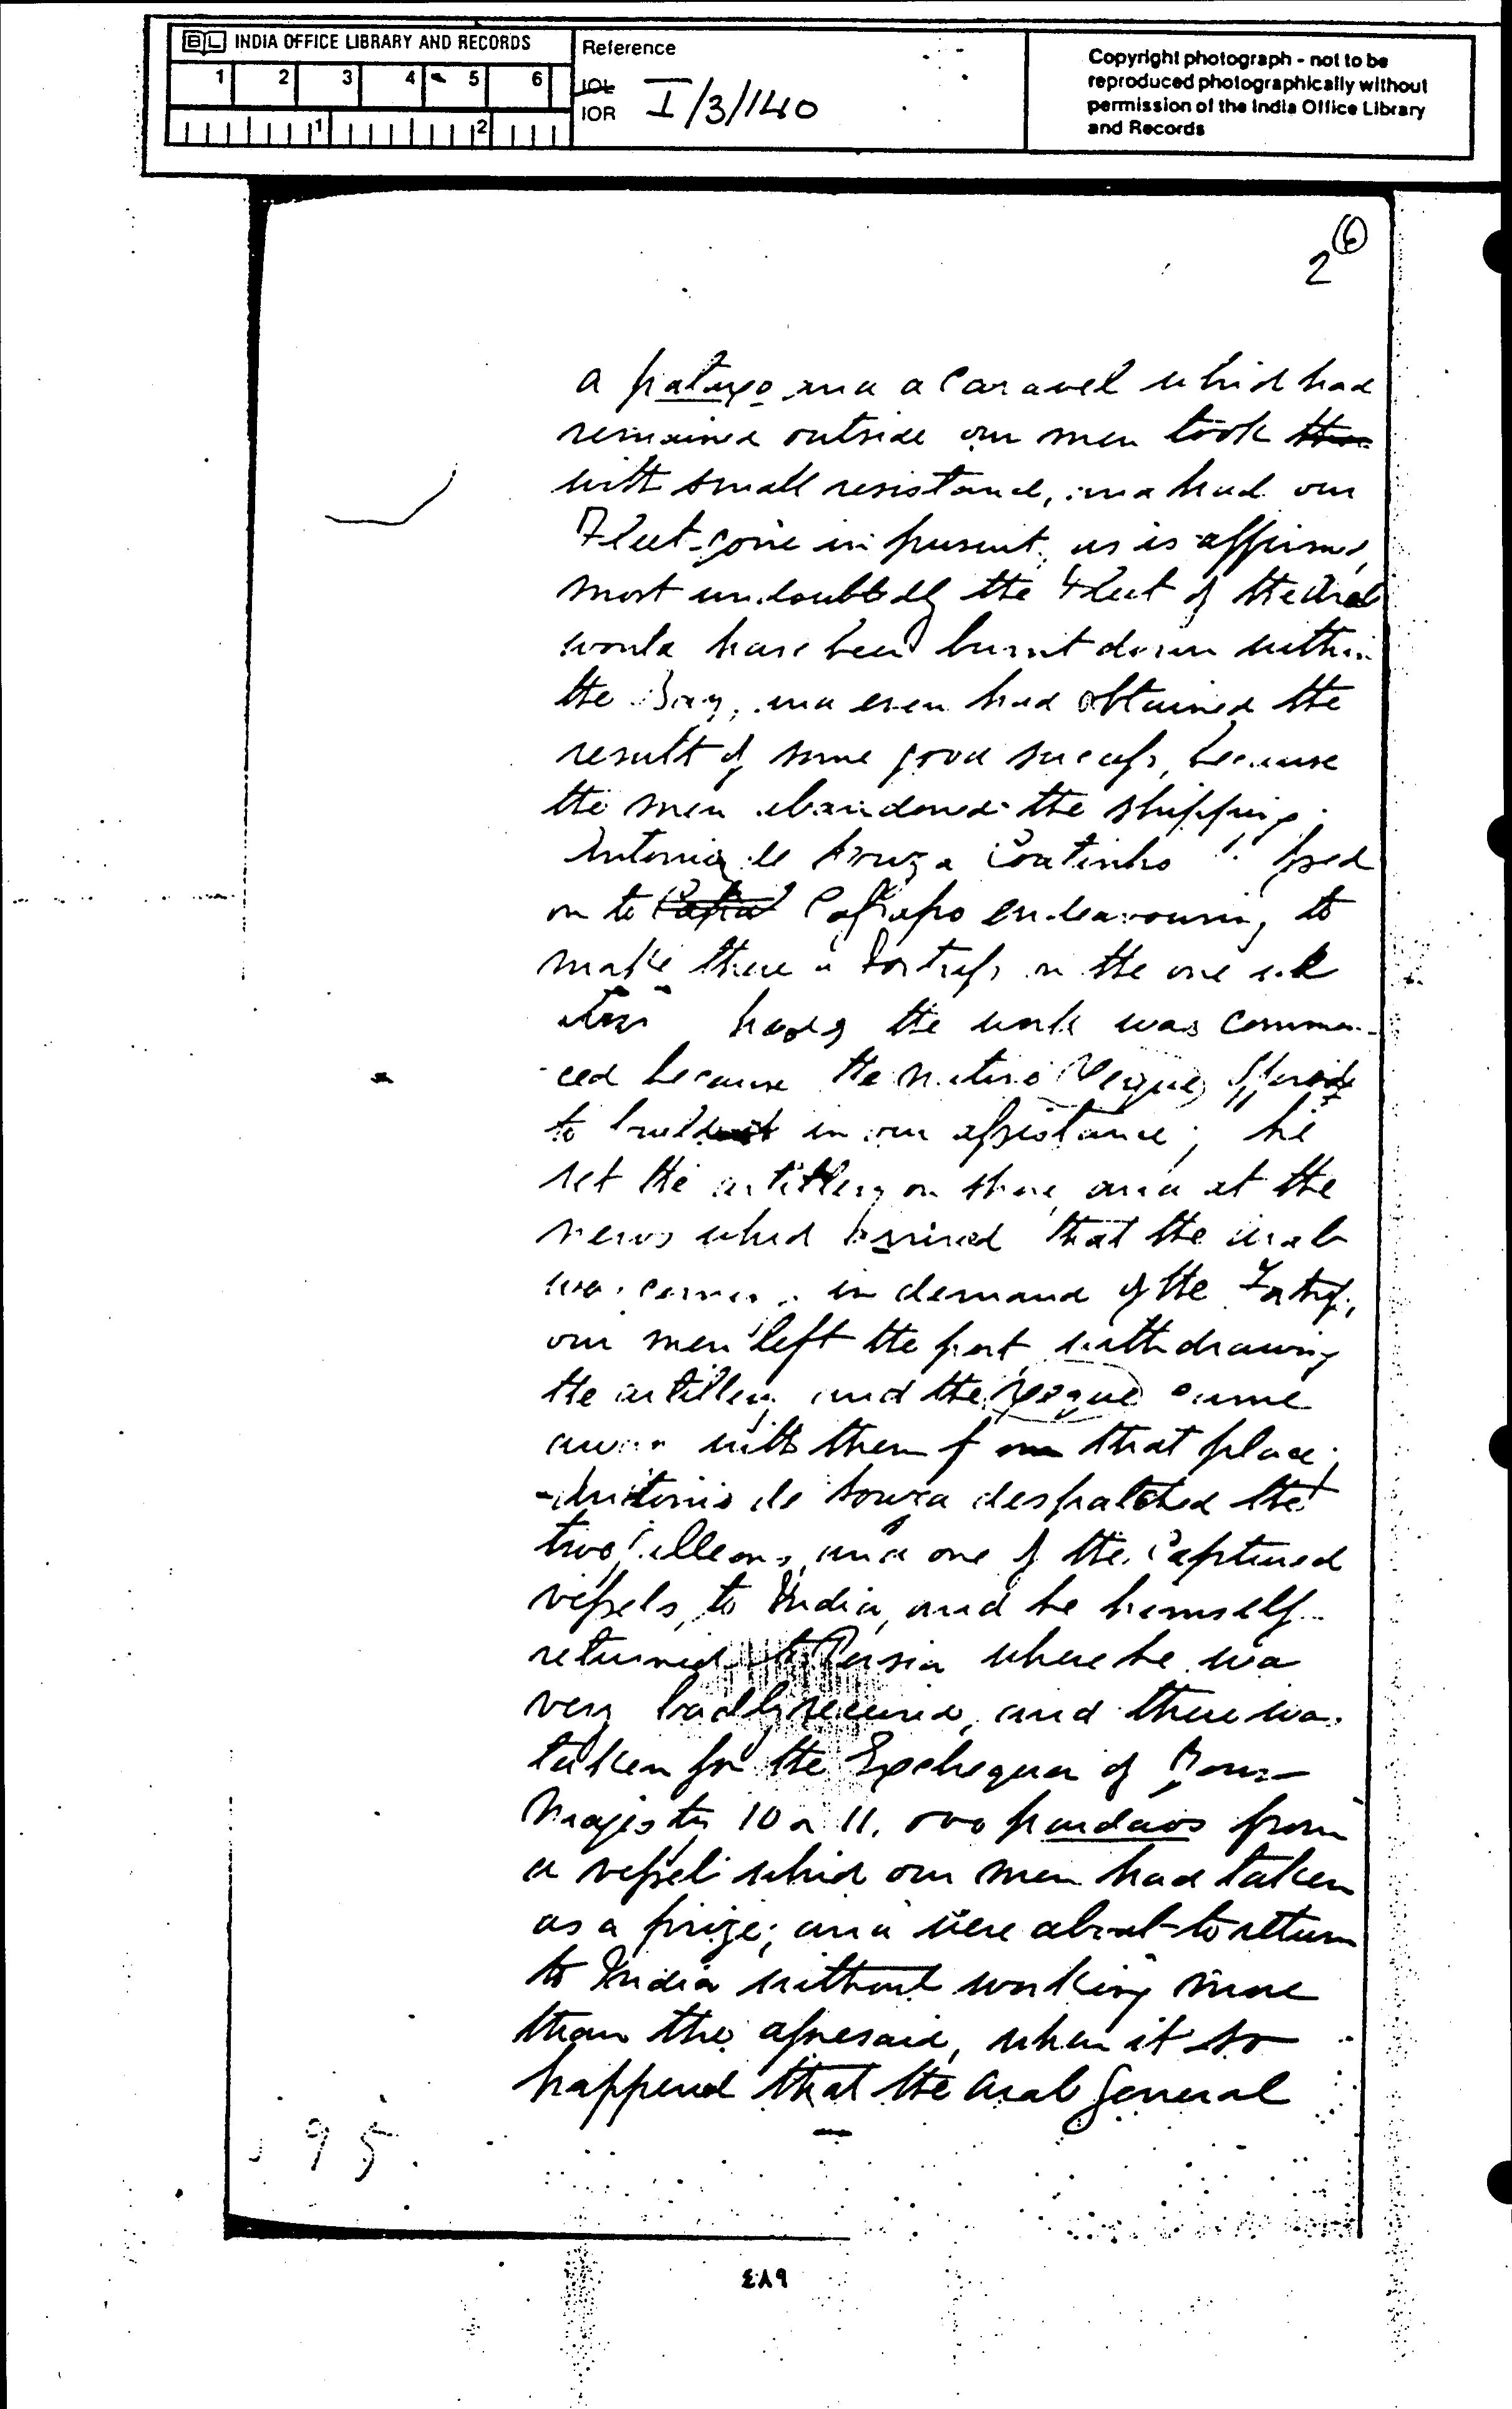 BL INDIA OFFICE LIBRARY AND RECORDS
1 2 3 4 5 6
1 2
Reference
IOL
IOR I/3/140
Copyright photograph - not to be
reproduced photographically without
permission of the India Office Library
and Records
6
2
a pataxo and a Caravel which had
remained outside our men took
with small resistance, and had our
Fleet gone in pursuit, as is affirmed,
most undoubtedly the Fleet of the Arab
would have been burnt down within
the Bay, and even had obtained the
result of some good success, because
the men abandoned the shipping;
Antonio de Souza Coutinho
on to endeavouring to
make there a Fortress on the one
the work was commen-
ced because the native Regue
to build in our assistance; he
set the artillery on shore and at the
news which arrived that the Arab
was coming in demand of the
our men left the port withdrawing
the artillery and the Regue came
away with them from that place;
Antonio de Souza despatched the
two Galleons, and one of the Captured
vessels, to India, and he himself
returned to Persia where he was
very badly received, and there was
taken for the Exchequer of Your
Majesty 10 a 11,000 pardaos from
a vessel which our men had taken
as a prize; and were about to return
to India without working more
than the aforesaid, when it so
happened that the Arab General
95.
٤٨٩